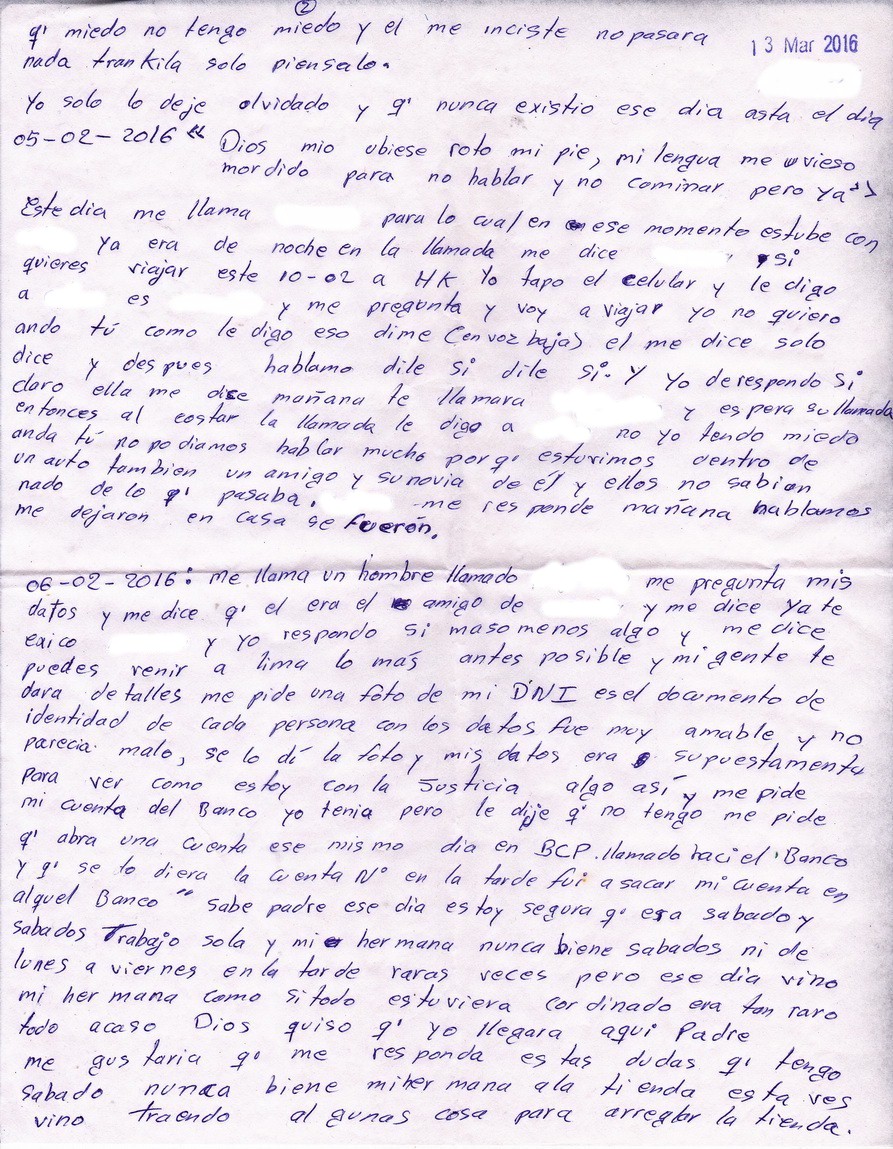 ②
q' miedo no tengo miedo y el me inciste no pasara
13 Mar 2016
nada trankila solo piensalo.
Yo solo lo deje olvidado y q' nunca existio ese dia asta el dia
05-02-2016 " Dios mio ubiese roto mi pie, mi lengua me uvieso
mordido para no hablar y no cominar pero ya">
Este dia me llama para lo cual en ese momento estube con
Ya era de noche en la llamada me dice , si
quieres viajar este 10-02 a HK Yo tapo el celular y le digo
a es y me pregunta y voy a viajar yo no quiero
ando tú como le digo eso dime (en voz baja) el me dice solo
dice y despues hablamo dile si dile si. Y Yo de respondo si
claro ella me dice mañana te llamara y espera su llamada
entonces al costar la llamada le digo a no yo tendo miedo
anda tú no podiamos hablar mucho porq' esturimos dentro de
un auto tambien un amigo y su novia de él y ellos no sabian
nado de lo q' pasaba. me responde mañana hablamos
me dejaron en casa se fuerón.
06-02-2016: me llama un hombre llamado me pregunta mis
datos y me dice q' el era el amigo de y me dice ya te
exico y yo respondo si masomenos algo y me dice
puedes venir a lima lo más antes posible y mi gente te
dara detalles me pide una foto de mi DNI es el documento de
identidad de cada persona con los datos fue muy amable y no
parecia malo, se lo dí la foto y mis datos era supuestamente
para ver como estoy con la Justicia algo así y me pide
mi cuenta del Banco yo tenia pero le dije q' no tengo me pide
q' abra una cuenta ese mismo dia en BCP. llamado haci el Banco
y q' se lo diera la cuenta N° en la tarde fui a sacar mi cuenta en
alquel Banco " sabe padre ese dia estoy segura q' era sabado y
sabados Trabajo sola y mi hermana nunca biene sabados ni de
lunes a viernes en la tarde raras veces pero ese dia vino
mi hermana como si todo estuviera cordinado era tan raro
todo acaso Dios quiso q' yo llegara aqui Padre
me gustaria q' me responda estas dudas q' tengo
sabado nunca biene mi hermana ala tienda esta ves
vino traendo algunas cosa para arreglar la tienda.